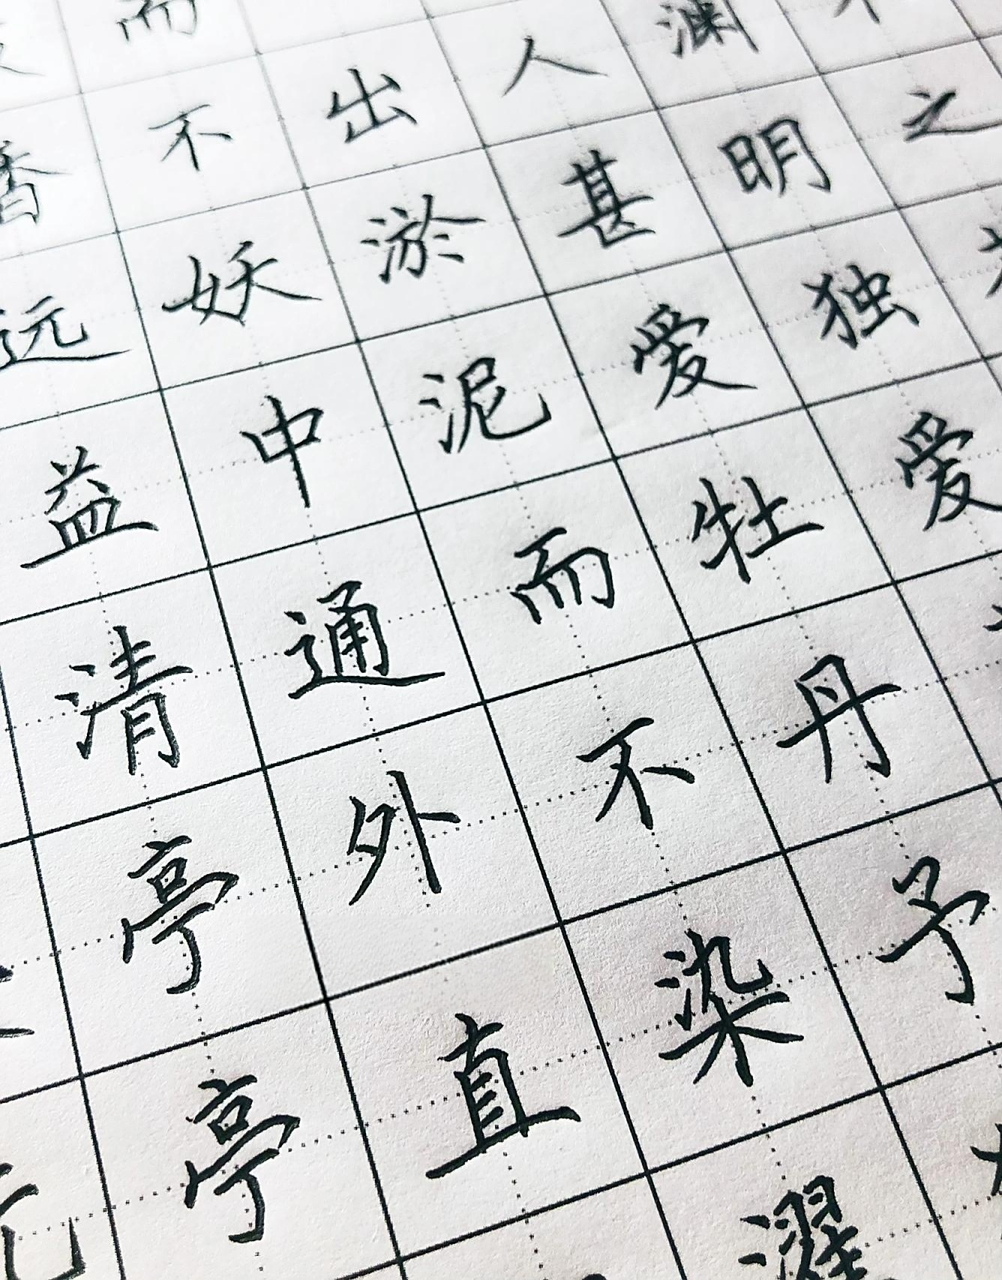 之
渊明独爱
人甚爱牡丹予
出淤泥而不染濯
而不妖中通外直
香远益清亭亭